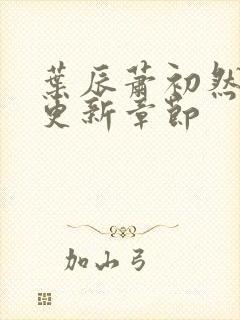 葉辰蕭初然
更新章節
加山弓